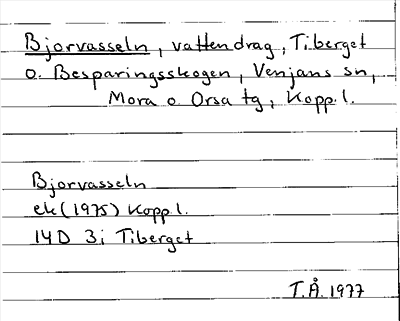 Bjorvasseln, vattendrag, Tiberget
o. Besparingsskogen, Venjans sn,
Mora o Orsa tg, Kopp. l.
Bjorvasseln
ek (1975) Kopp l.
14D 3i Tiberget
T.Å. 1977